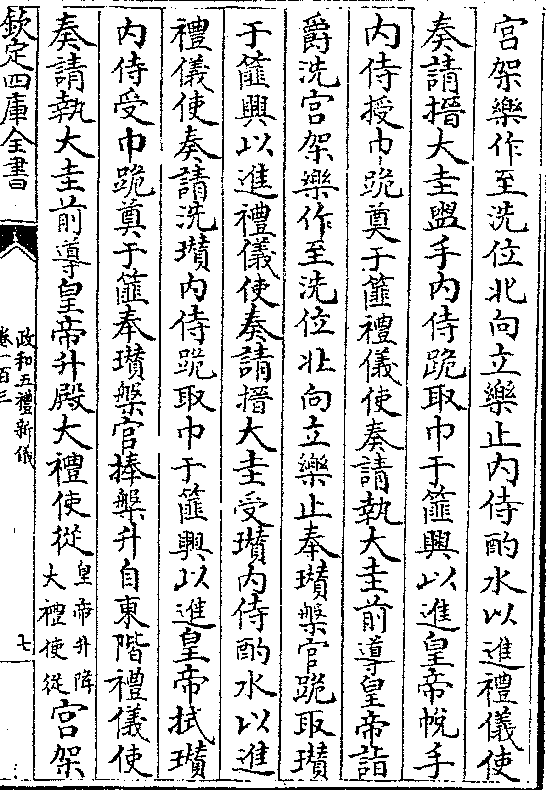 宫架樂作至洗位北向立樂止内侍酌水以進禮儀使
奏請搢大圭盥手内侍跪取巾于篚興以進皇帝帨手
内侍授巾跪奠于篚禮儀使奏請執大圭前導皇帝詣
爵洗宫架樂作至洗位北向立樂止奉瓚槃官跪取瓚
于篚興以進禮儀使奏請搢大圭受瓚内侍酌水以進
禮儀使奏請洗瓚内侍跪取巾于篚興以進皇帝拭瓚
内侍受巾跪奠于篚奉瓚槃官捧槃升自東階禮儀使
奏請執大圭前導皇帝升殿大禮使從皇帝升降大禮使從宫架
欽定四庫全書
政和五禮新儀
卷一百三
七